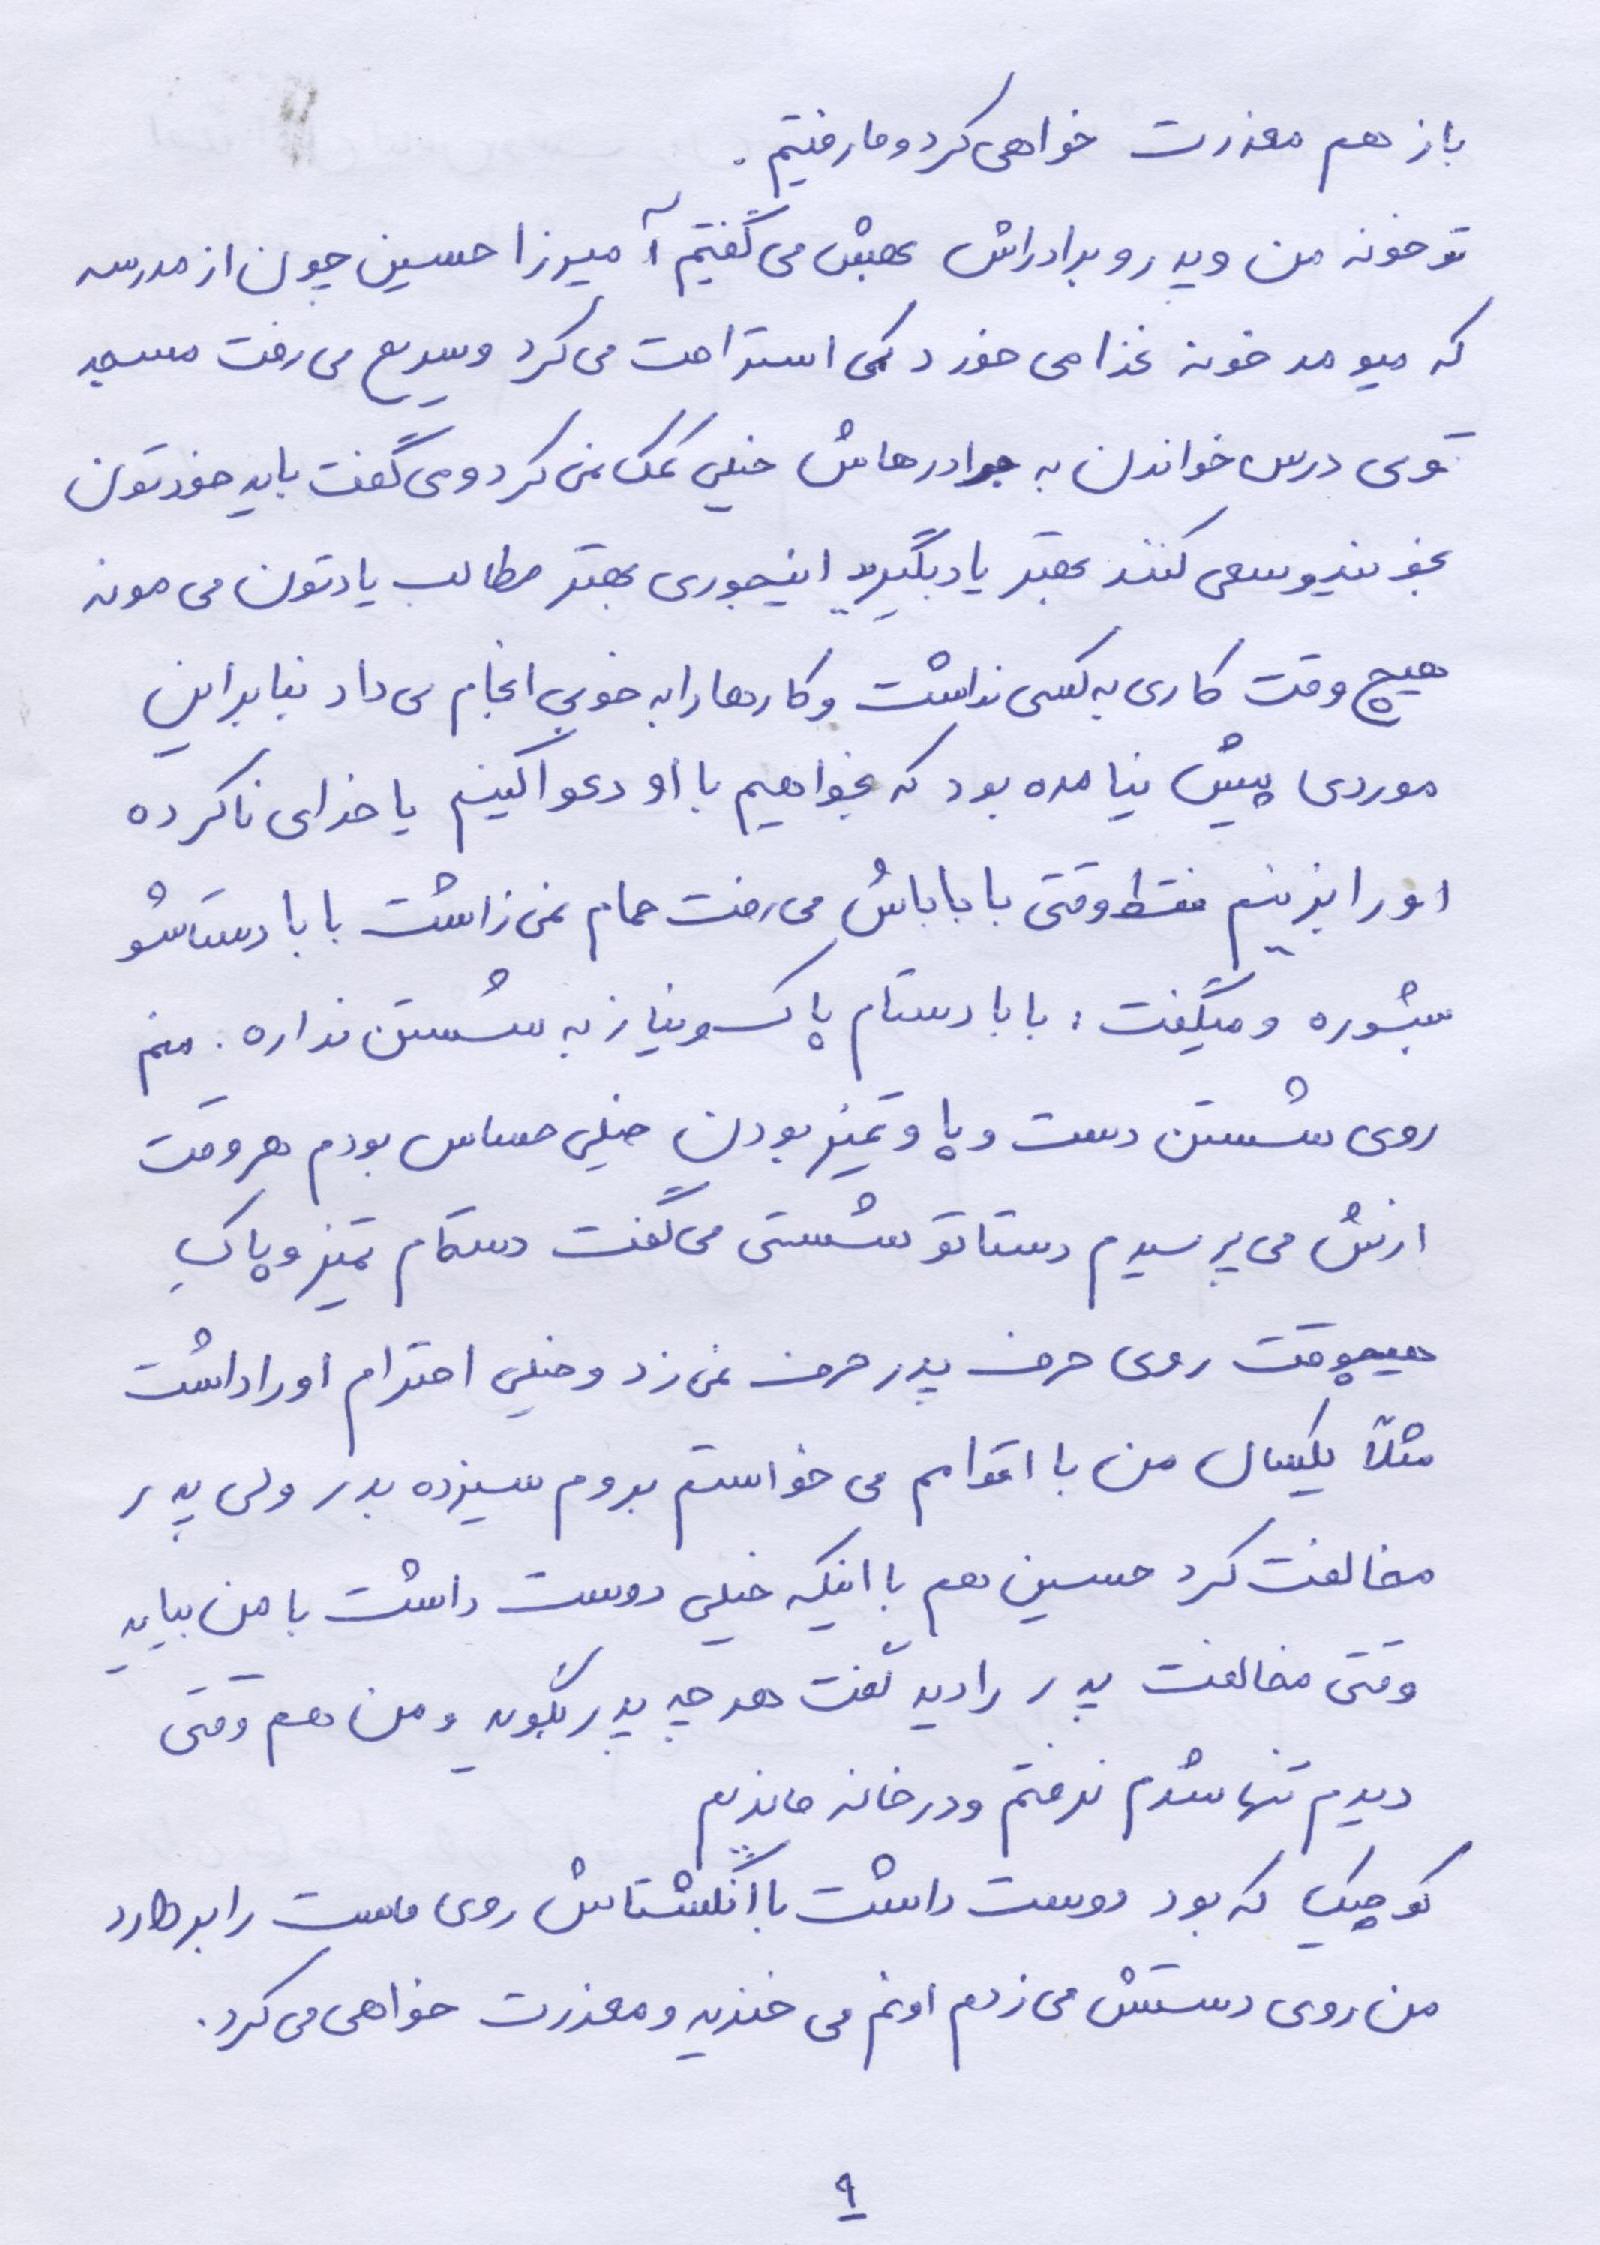 باز هم معذرت خواهی کرد و ما رفتیم.
تو خونه من و پدر و برادراش بهش می گفتیم آ میرزا حسین چون از مدرسه
که میومد خونه غذا می خورد کمی استراحت می کرد و سریع می رفت مسجد
توی درس خواندن به برادرهاش خیلی کمک نمی کرد و می گفت باید خودتون
بخونید و سعی کنند بهتر یاد بگیرید اینجوری بهتر مطالب یادتون می مونه
هیچ وقت کاری به کسی نداشت و کارها را به خوبی انجام می داد بنابراین
موردی پیش نیامده بود که بخواهیم با او دعوا کنیم یا خدای ناکرده
او را بزنیم فقط وقتی با باباش می رفت حمام نمی زاشت بابا دستاشو
بشوره و میگفت: بابا دستام پاکسو نیاز به شستن نداره. منم
روی شستن دست و پا و تمیز بودن خیلی حساس بودم هر وقت
ازش می پرسیدم دستاتو شستی می گفت دستام تمیز و پاکِ
هیچوقت روی حرف پدر حرف نمی زد و خیلی احترام او را داشت
مثلاً یکسال من با اقوام می خواستم بروم سیزده بدر ولی پدر
مخالفت کرد حسین هم با اینکه خیلی دوست داشت با من بیاید
وقتی مخالفت پدر را دید گفت هر چه پدر بگوید و من هم وقتی
دیدم تنها شدم نرفتم و در خانه ماندیم
کوچیک که بود دوست داشت با انگشتاش روی ماست را بردارد
من روی دستش می زدم اونم می خندید و معذرت خواهی می کرد.
۹